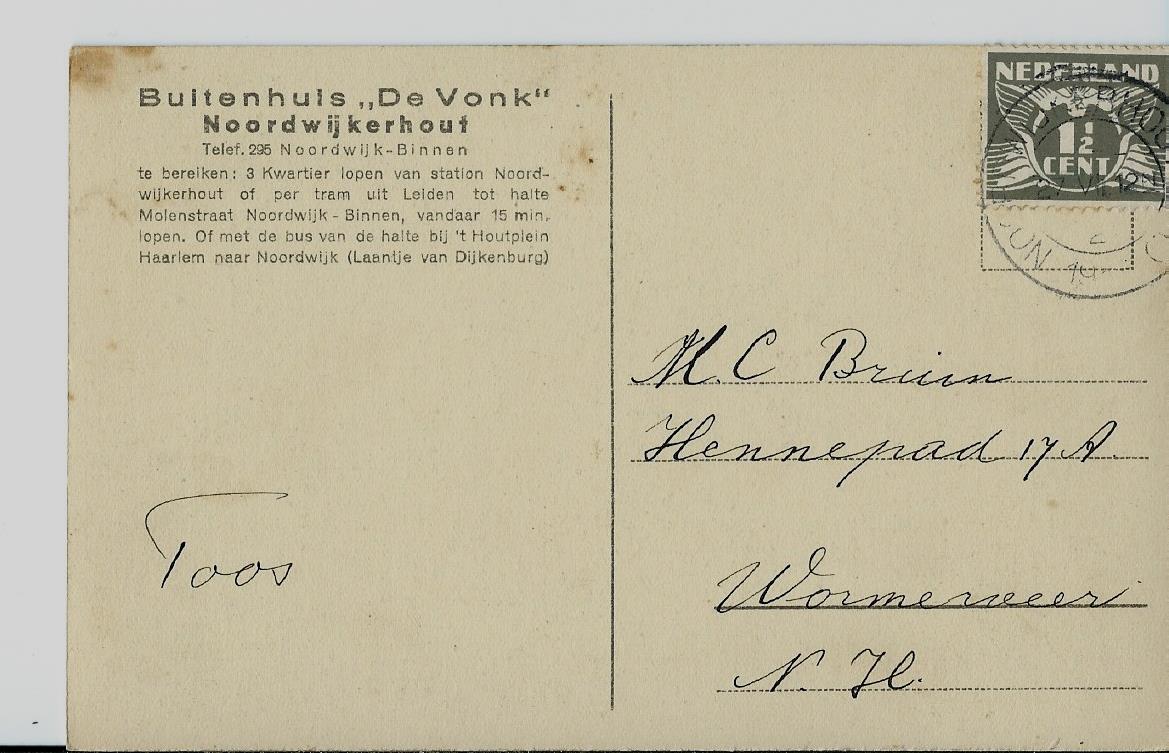 Buitenhuis „De Vonk"
Noordwijkerhout
Telef. 295 Noordwijk-Binnen
te bereiken: 3 Kwartier lopen van station Noord-
wijkerhout of per tram uit Leiden tot halte
Molenstraat Noordwijk - Binnen, vandaar 15 min.
lopen. Of met de bus van de halte bij 't Houtplein
Haarlem naar Noordwijk (Laantje van Dijkenburg)
Toos
NEDERLAND
1½
CENT
M. C Bruin
Hennepad 17 A.
Wormerveer
N. H.